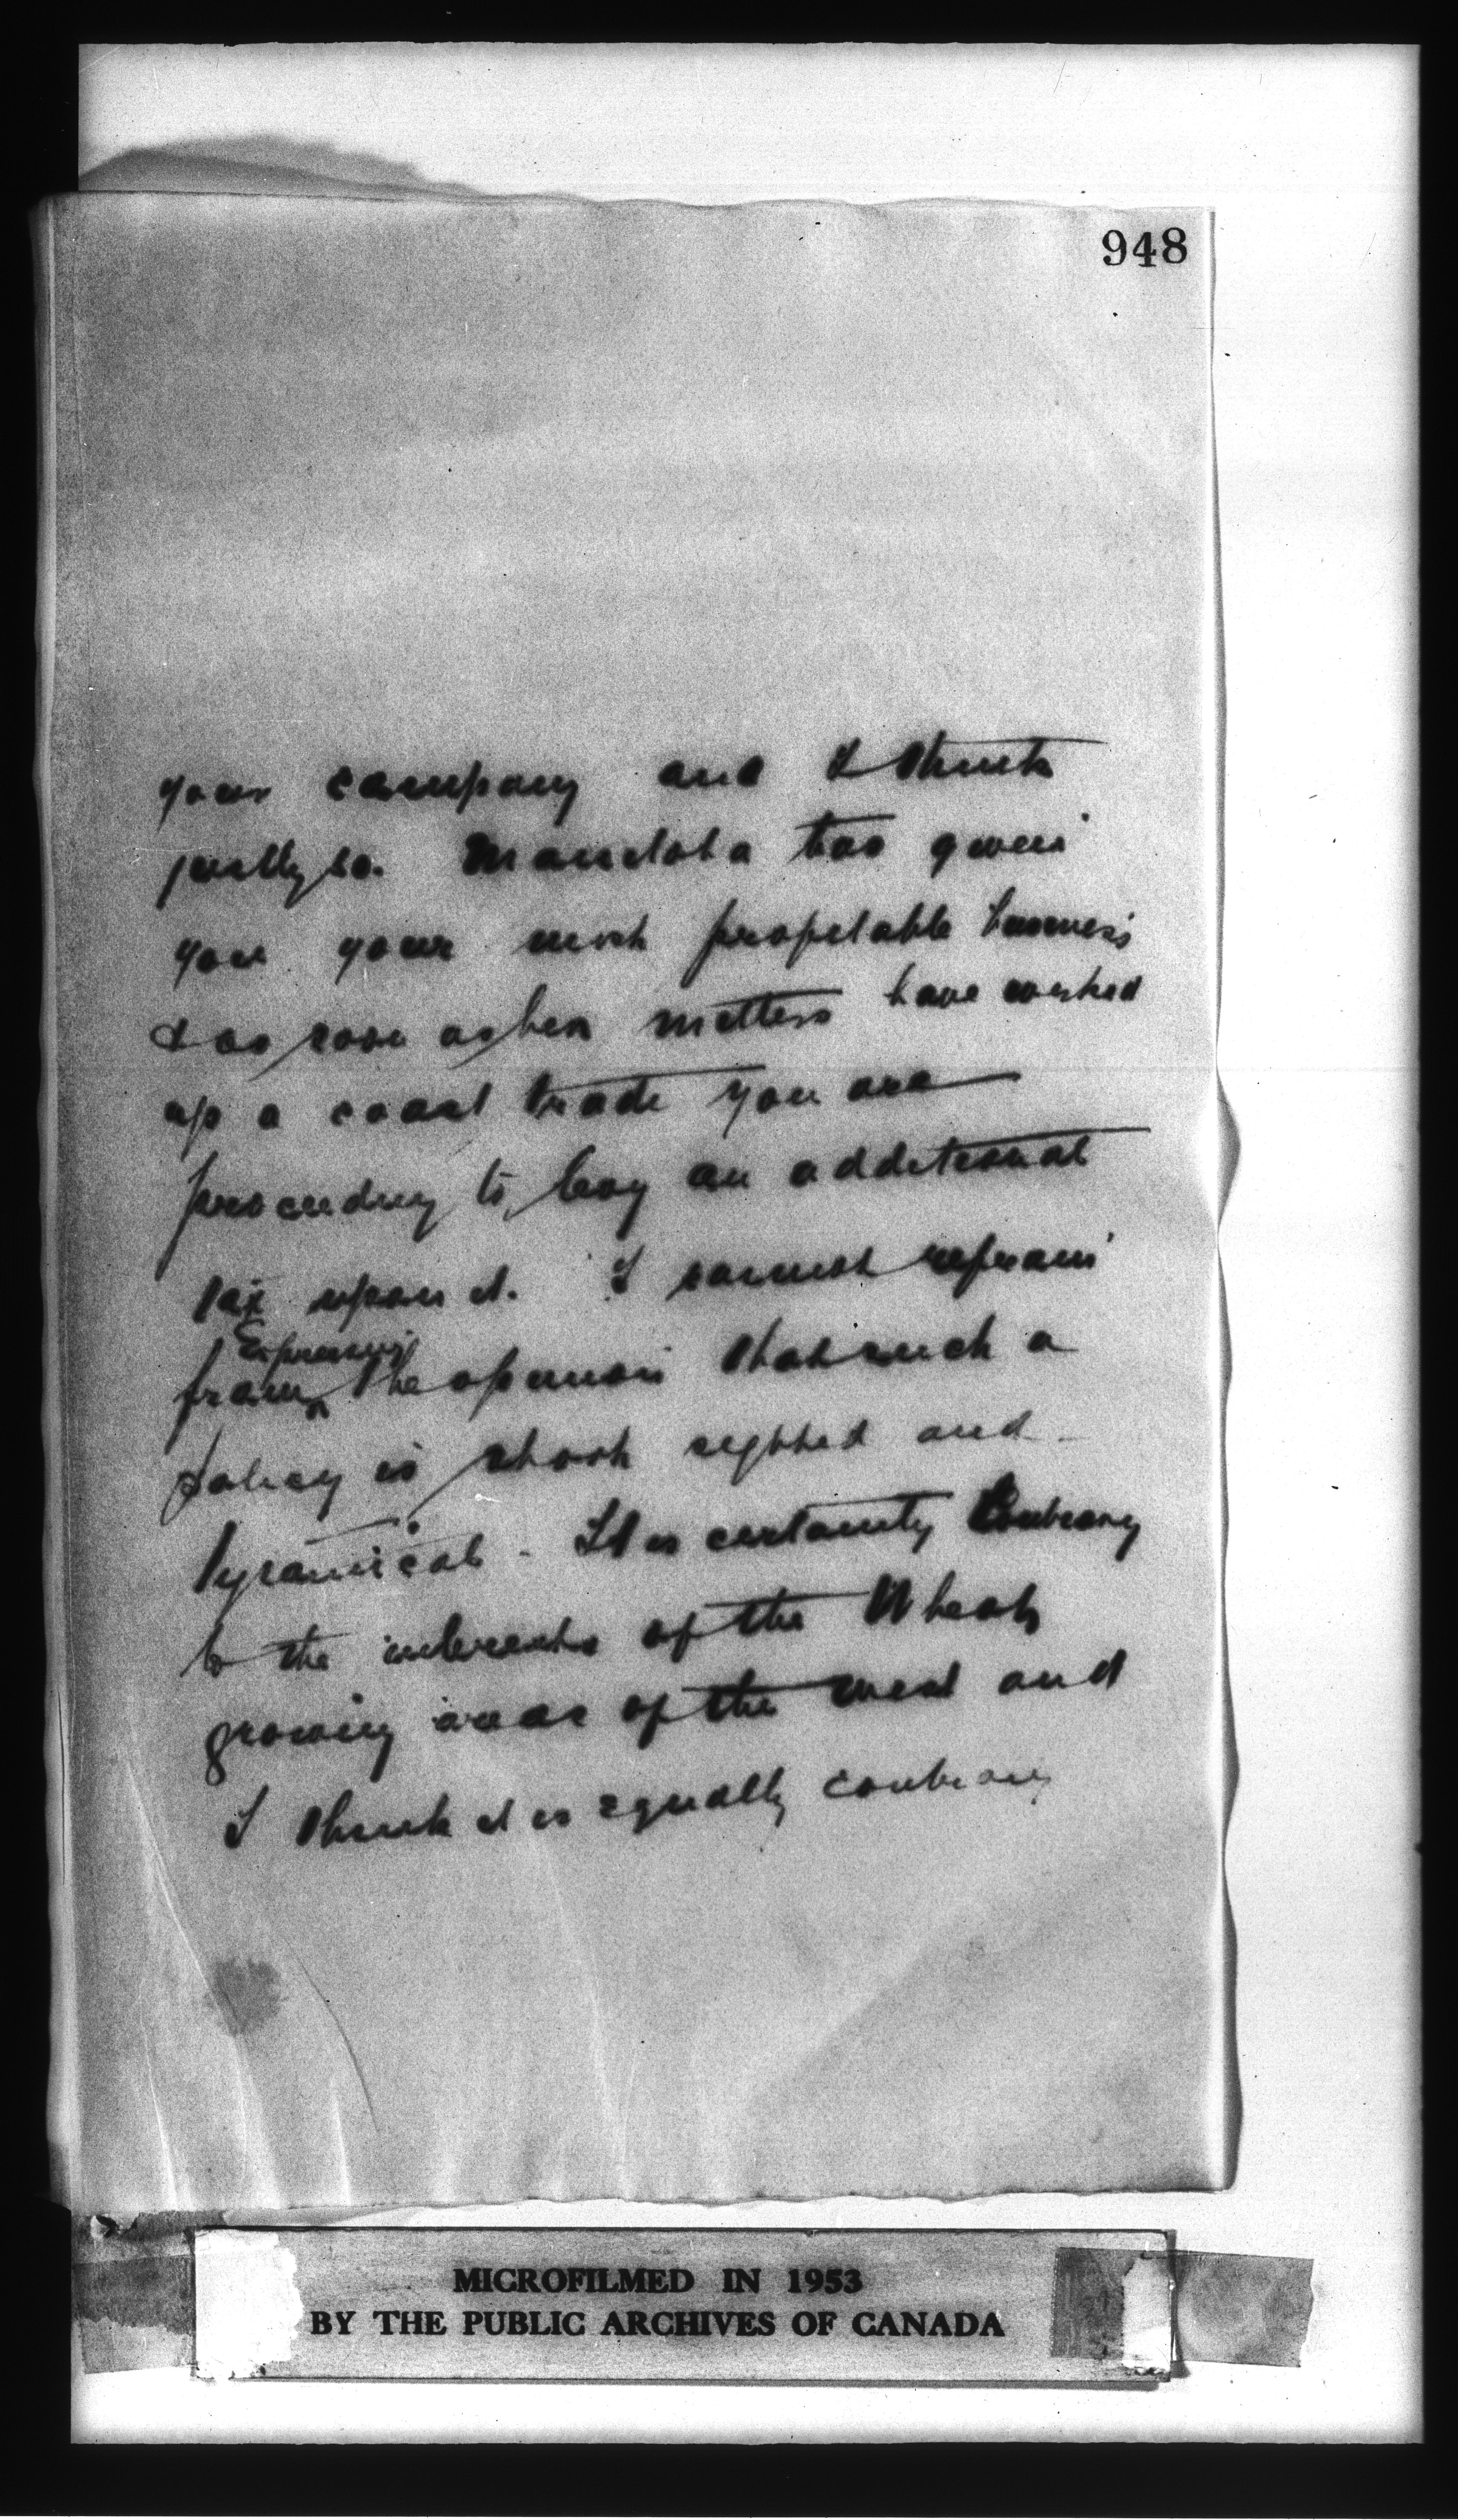 948
your company and I think
justly so. Manitoba has given
you your most profitable business
& as soon as her matters have worked
up a coast trade you are
proceeding to levy an additional
tax upon it. I cannot refrain
Expressing
from the opinion that such a
policy is short sighted and
tyranical - It is certainly Contrary
to the interests of the Wheat
growing areas of the west and
I think it is equally contrary
MICROFILMED IN 1953
BY THE PUBLIC ARCHIVES OF CANADA